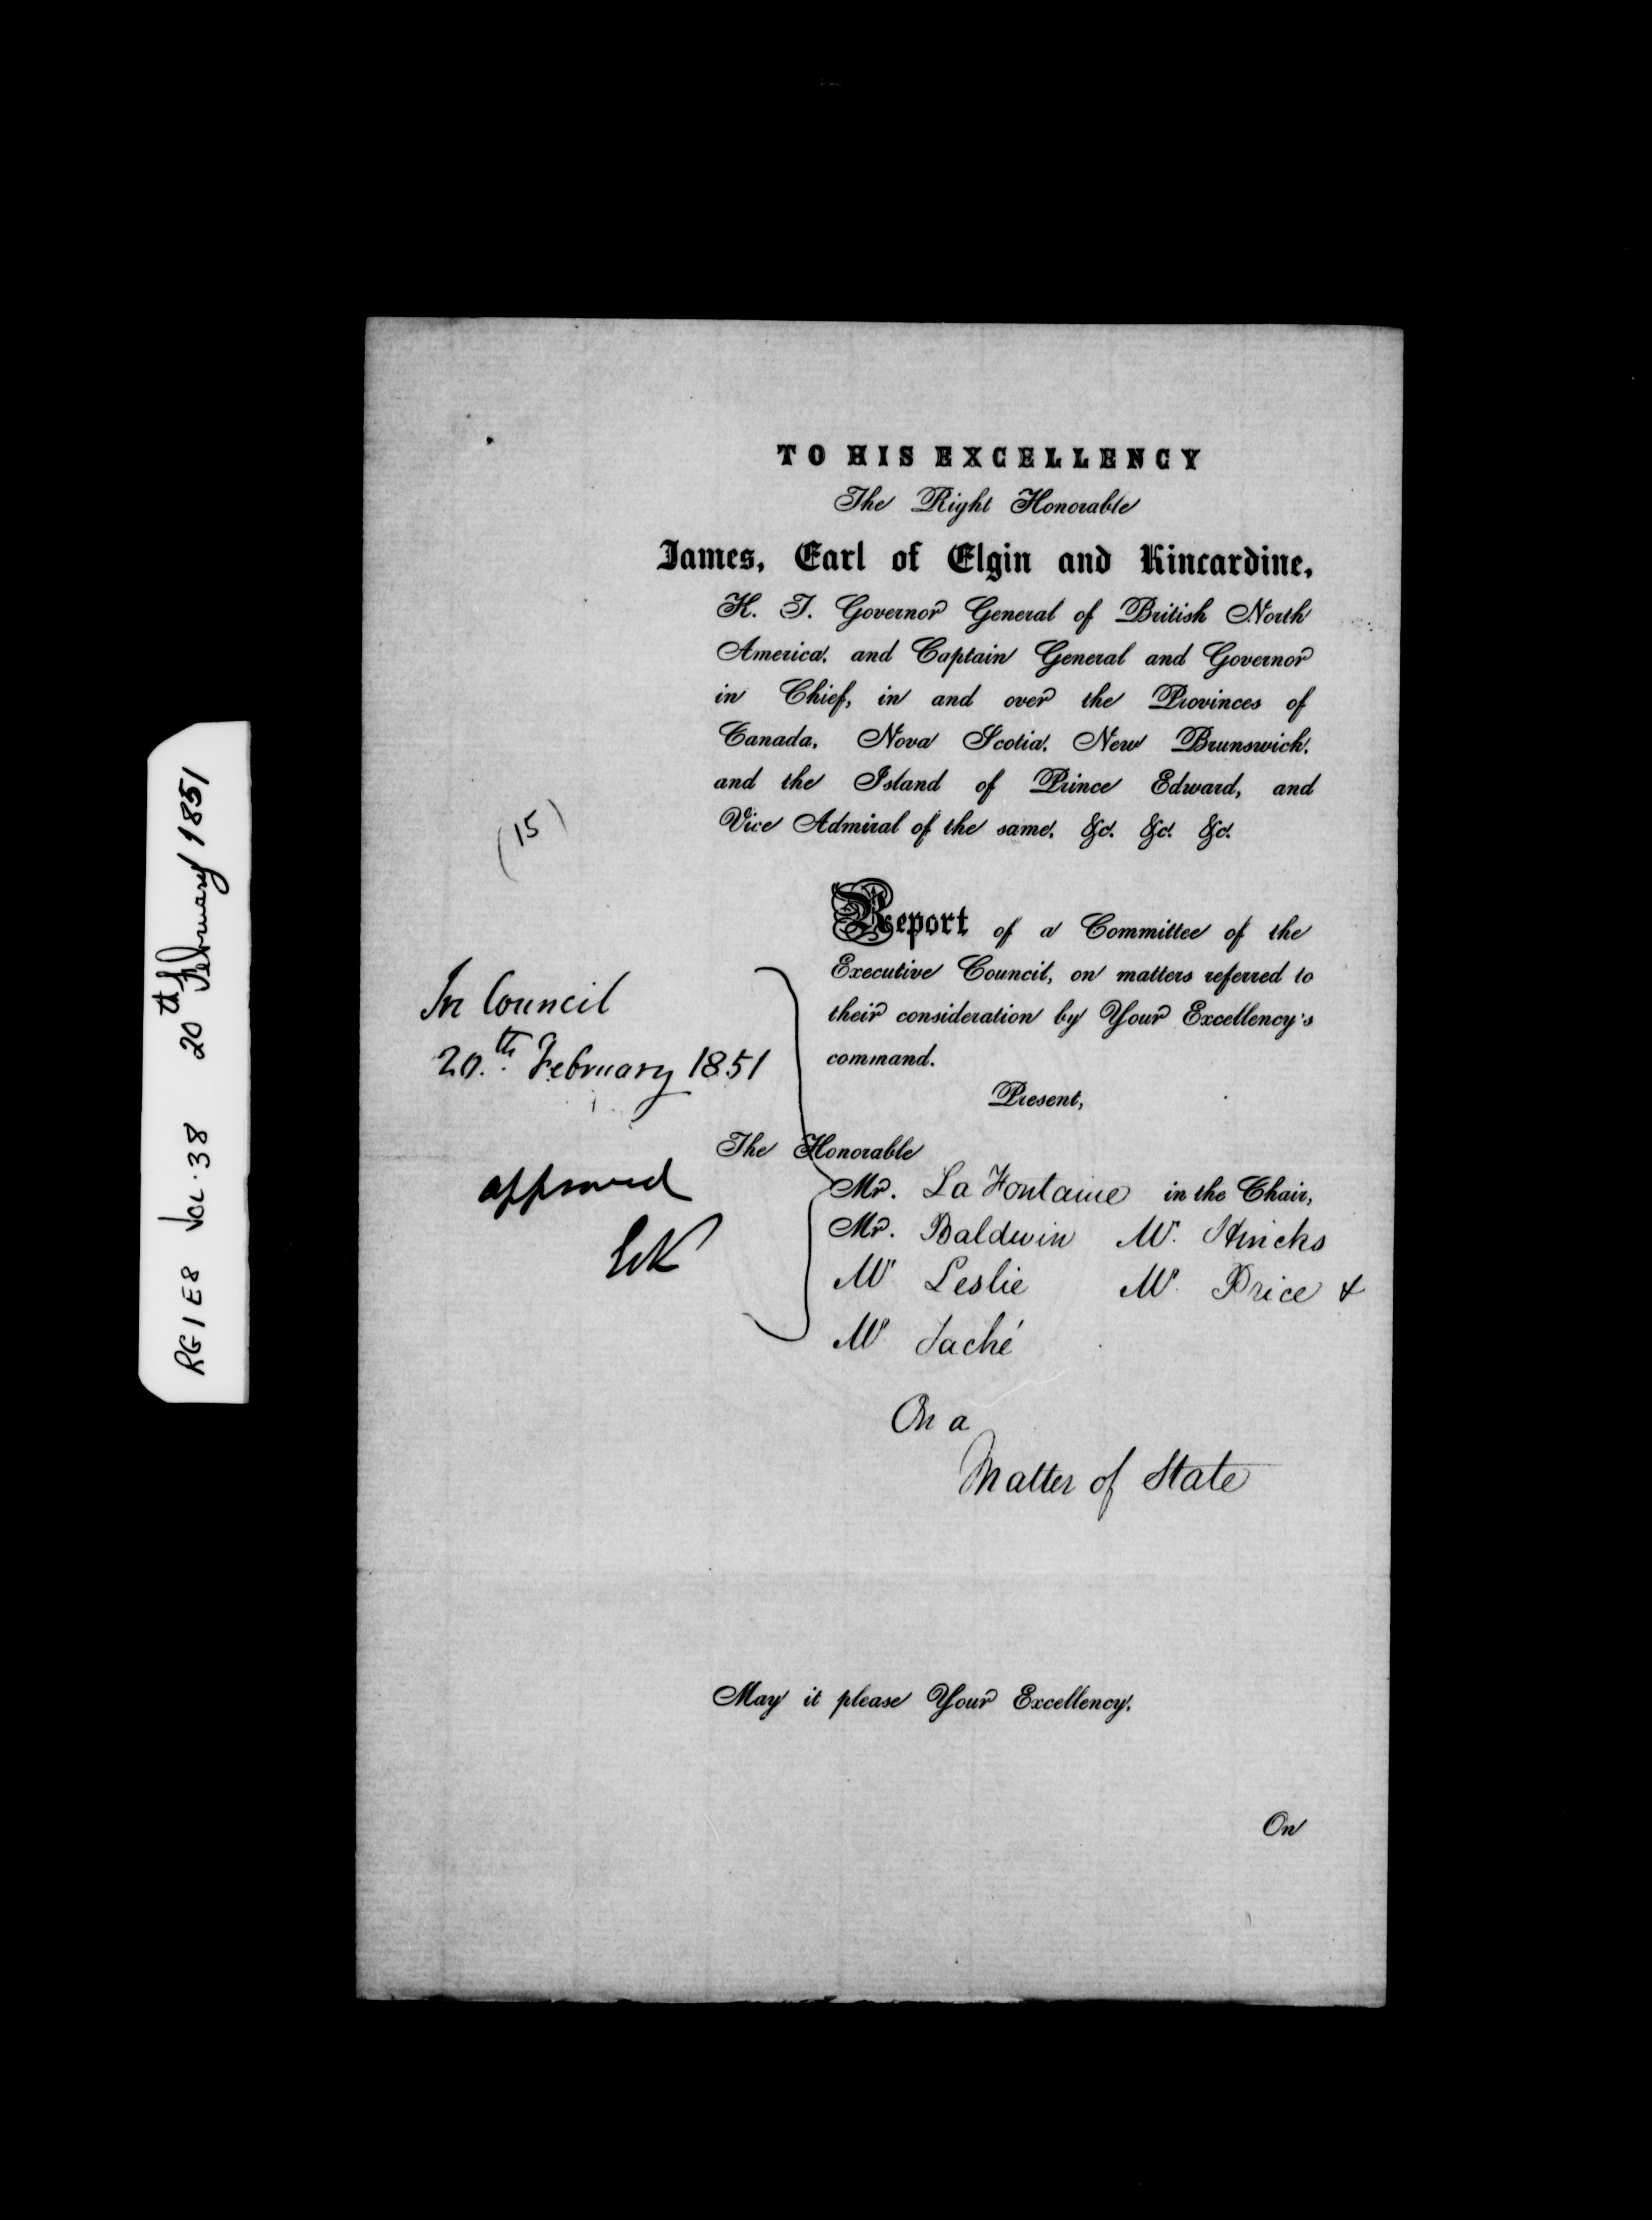 RG1 E8 Vol. 38 20th February 1851
TO HIS EXCELLENCY
The Right Honorable
James, Earl of Elgin and Kincardine,
K. T. Governor General of British North
America, and Captain General and Governor
in Chief, in and over the Provinces of
Canada, Nova Scotia, New Brunswick,
and the Island of Prince Edward, and
Vice Admiral of the same, &c. &c. &c.
(15)
Report of a Committee of the
Executive Council, on matters referred to
their consideration by Your Excellency's
command.
In Council
20th February 1851
approved
E&K
Present,
The Honorable
Mr. La Fontaine in the Chair,
Mr. Baldwin Mr. Hincks
Mr Leslie Mr. Price &
Mr Taché
On a
Matter of State
May it please Your Excellency,
On